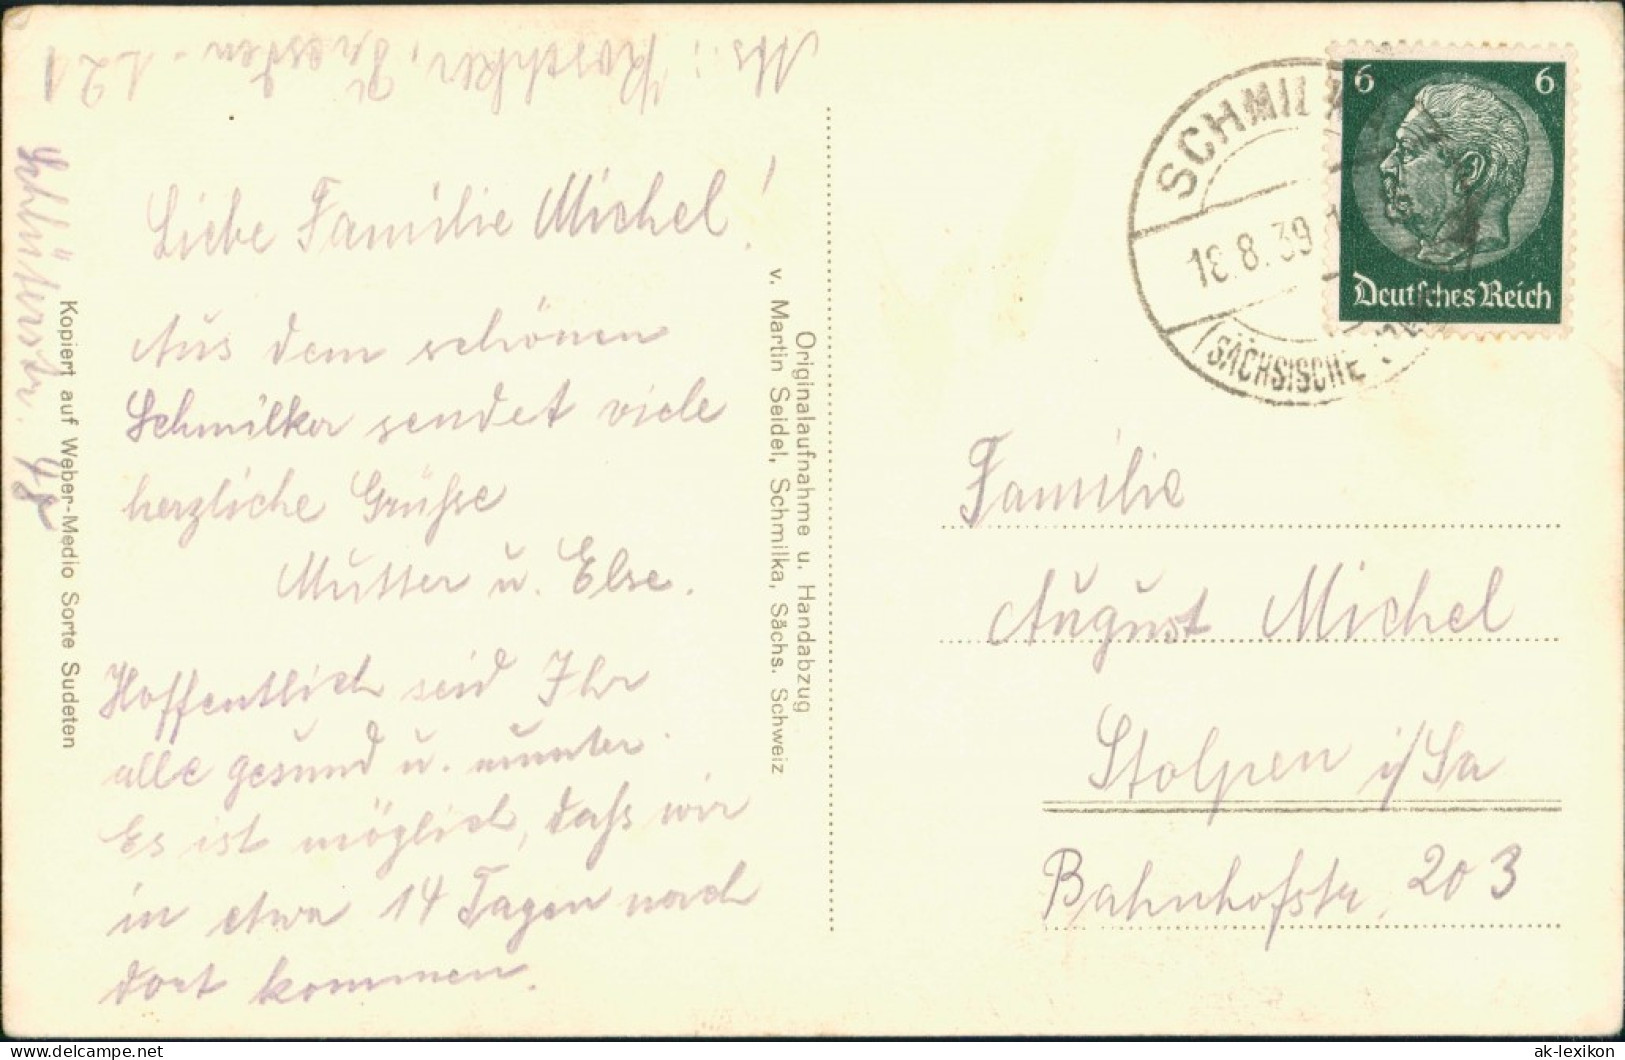 Abs.: Koschker, Dresden - A 21
Schlüterstr. 48
Liebe Familie Michel!
Aus dem schönen
Schmilka sendet viele
herzliche Grüße
Mutter u. Else.
Hoffentlich seid Ihr
alle gesund u. munter.
Es ist möglich, daß wir
in etwa 14 Tagen nach
dort kommen.
Kopiert auf Weber-Medio Sorte Sudeten
Originalaufnahme u. Handabzug
v. Martin Seidel, Schmilka, Sächs. Schweiz
SCHMILKA
18.8.39
(SÄCHSISCHE
6 6
Deutsches Reich
Familie
August Michel
Stolpen i/Sa
Bahnhofstr. 203
ak-ansichtskarten.de
ak-lexikon